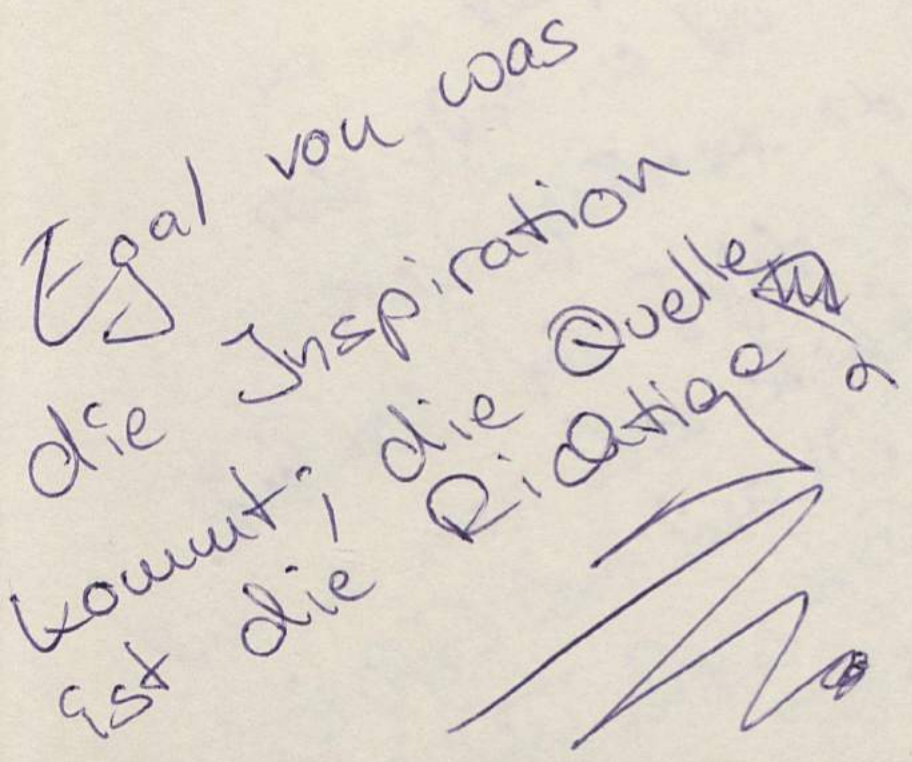 Egal von was
die Inspiration
kommt; die Quelle
ist die Richtige